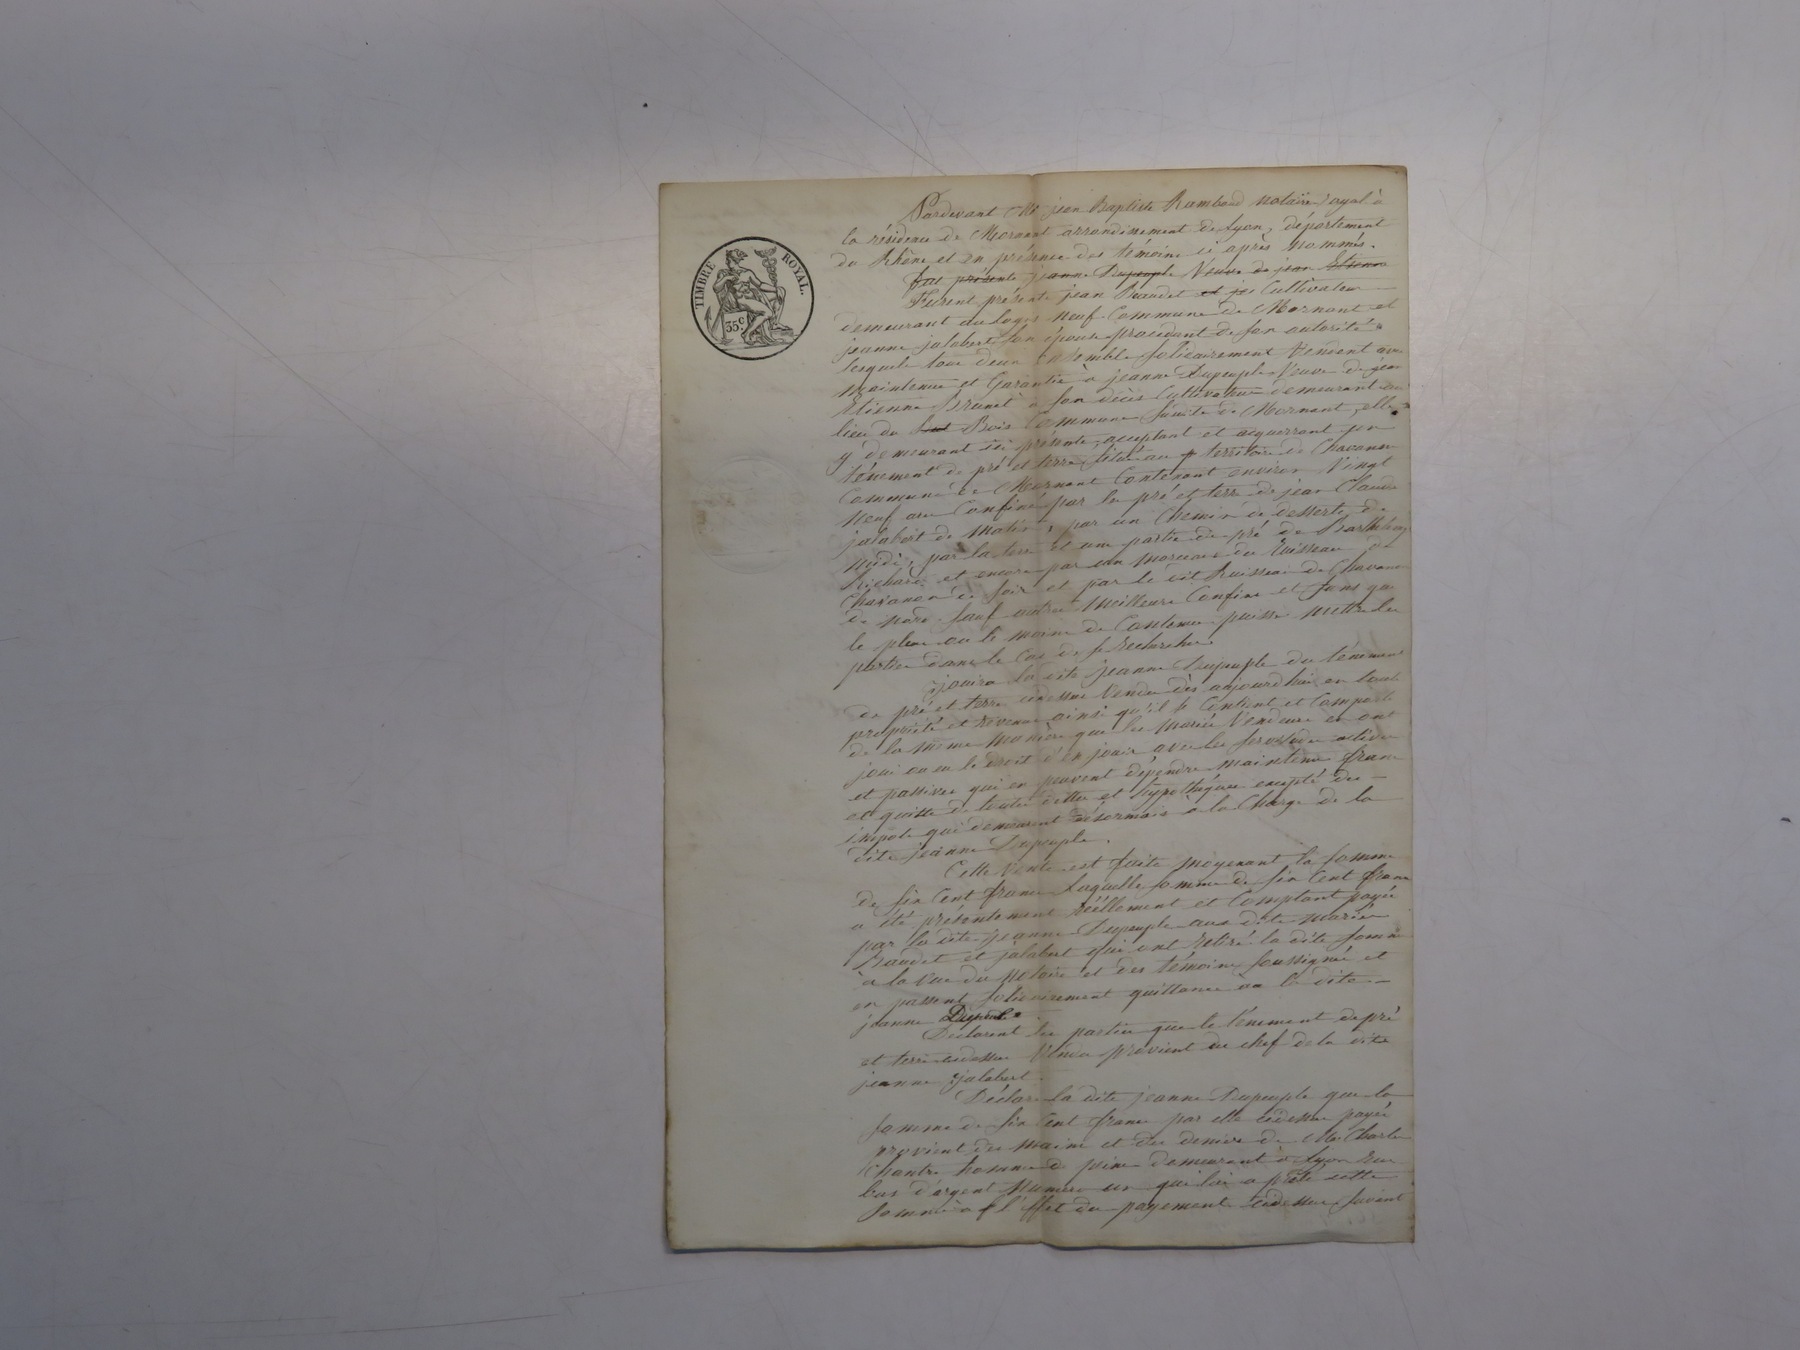 TIMBRE ROYAL.
35c
Pardevant Me jean Baptiste Rambaud notaire royal à
la résidence de Mornant arrondissement de Lyon, département
du Rhône et en présence des témoins ci après nommés.
Fut présente jeanne Dupeuple Veuve de jean Etienne
Furent présents jean Baudet et je Cultivateur
demeurant au logis neuf Commune de Mornant et
jeanne jalabert son épouse procédant de son autorité
lesquels tous deux Ensemble solidairement Vendent avec
maintenue et Garantie à jeanne Dupeuple Veuve de jean
Etienne Brunet à son décès Cultivateur demeurant au
lieu du Bois Commune susdite de Mornant, elle
y demeurant ici présente, acceptant et acquerrant un
tènement de pré et terre situé au territoire de Chavanon
Commune de Mornant Contenant environ Vingt
neuf ares Confiné par le pré et terre de jean Claude
jalabert de matin, par un Chemin de desserte de
midi, par la terre et une partie du pré de Barthelemy
Richard et encore par un morceau du Ruisseau de
Chavanon de soir et par le dit Ruisseau de Chavanon
de nord. sauf autres meilleurs Confins et sans que
le plus ou le moins de Contenu puisse mettre les
parties dans le Cas de se rechercher.
jouira la dite jeanne Dupeuple du tènement
de pré et terre cidessus Vendu dès aujourdhui en toute
propriété et revenus ainsi qu'il se Contient et Comporte
de la même manière que les mariés Vendeurs en ont
joui ou eu le droit d'en jouir avec les servitudes actives
et passives qui en peuvent dépendre maintenu franc
et quitte de toutes dettes et hypothèques excepté des
impots qui demeurent désormais à la Charge de la
dite jeanne Dupeuple.
Cette Vente est faite moyenant la somme
de six Cent francs Laquelle somme de six Cent francs
a été présentement réellement et Comptant payée
par la dite jeanne Dupeuple aux dits mariés
Baudet et jalabert qui ont retiré la dite somme
à la Vue du Notaire et des témoins soussignés et
en passent solidairement quittance à la dite
jeanne Dupeuple
Déclarent les parties que le tènement de pré
et terre cidessus Vendu provient du chef de la dite
jeanne jalabert.
Déclare la dite jeanne Dupeuple que la
somme de six Cent francs par elle cidessus payée
provient des mains et des deniers de Mr Charles
Chantre homme de peine demeurant à Lyon Rue
bas d'argent Numéro un qui lui a prêté cette
somme à l'effet du payement cidessus suivant